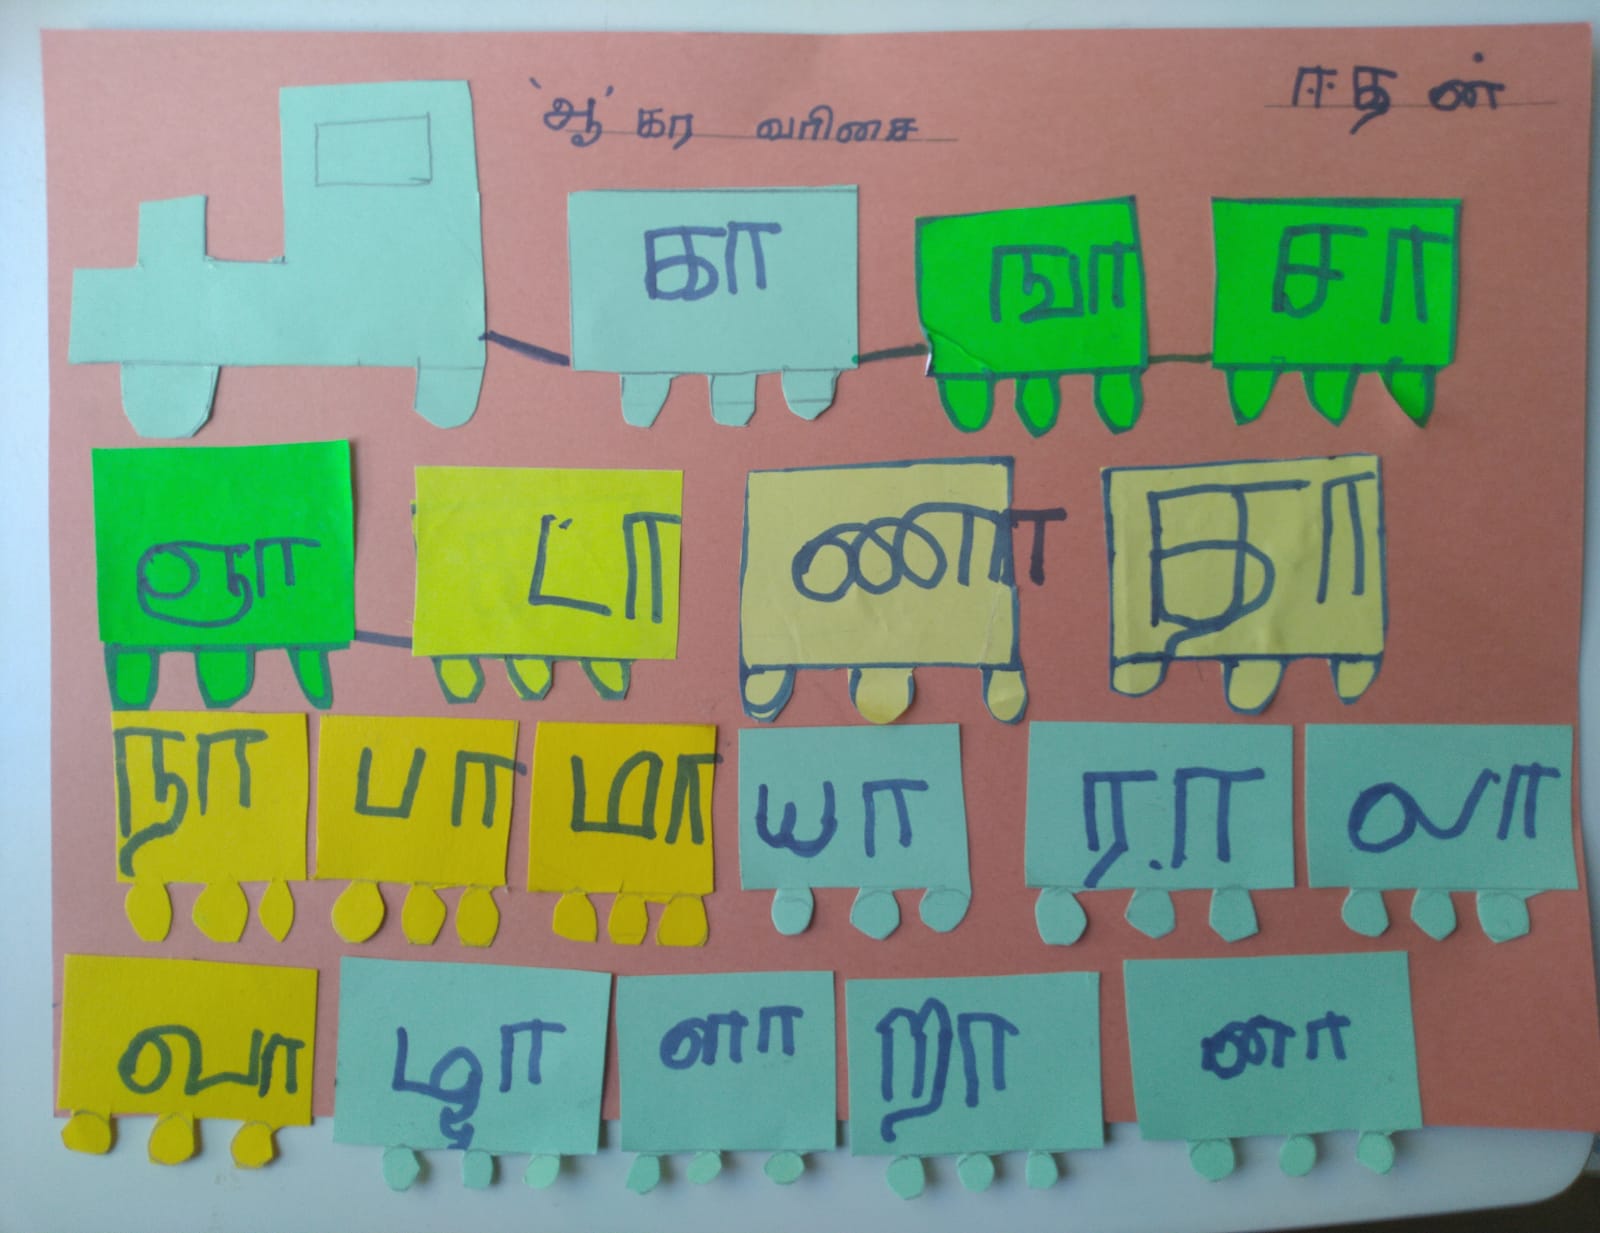 'ஆ' கர வரிசை
ஈதன்
கா ஙா சா
ஞா டா ணா தா
நா பா மா யா ரா லா
வா ழா ளா றா னா